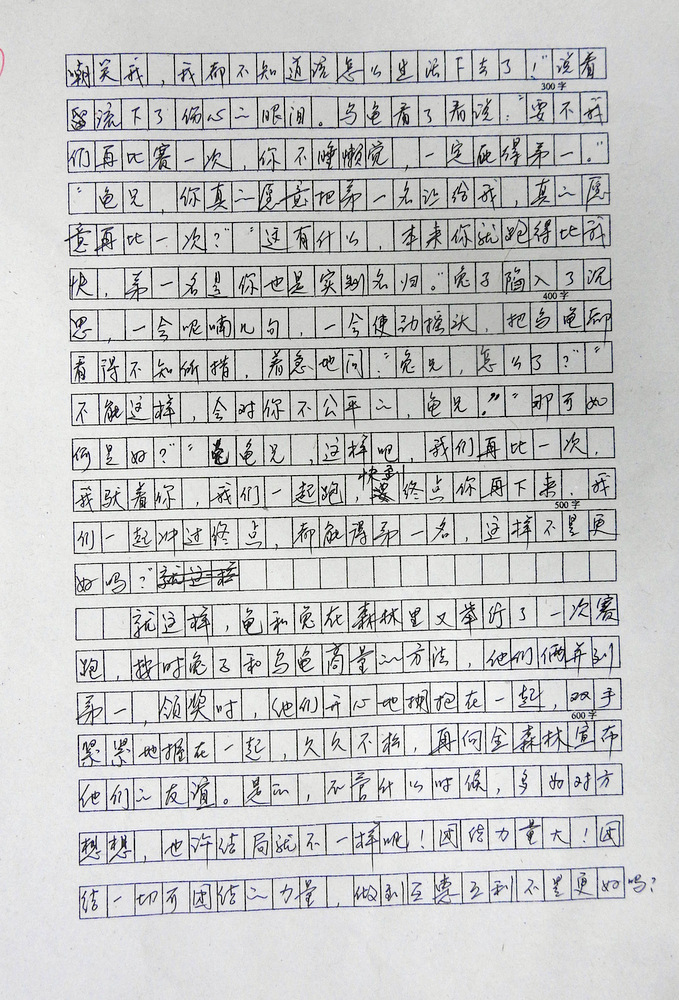 嘲笑我，我都不知道该怎么生活下去了！”说着
300字
流下了伤心的眼泪。乌龟看了看说：“要不我
们再比赛一次，你不睡懒觉，一定能得第一。”
“龟兄，你真的愿意把第一名让给我，真的愿
意再比一次？”“这有什么，本来你就跑得比我
快，第一名是你也是实至名归。”兔子陷入了沉
400字
思，一会呢喃几句，一会使劲摇头，把乌龟都
看得不知所措，着急地问：“兔兄，怎么了？”“
不能这样，会对你不公平的，龟兄。”“那可如
何是好？”“龟兄，这样吧，我们再比一次，
我驮着你，我们一起跑，快到终点你再下来，我
500字
们一起冲过终点，都能得第一名，这样不是更
好吗？”就这样
就这样，龟和兔在森林里又举行了一次赛
跑，按时兔子和乌龟商量的方法，他们俩并列
第一，领奖时，他们开心地拥抱在一起，双手
600字
紧紧地握在一起，久久不松，再向全森林宣布
他们的友谊。是的，不管什么时候，多如对方
想想，也许结局就不一样呢！团结力量大！团
结一切可团结的力量，做到互惠互利不是更好吗？